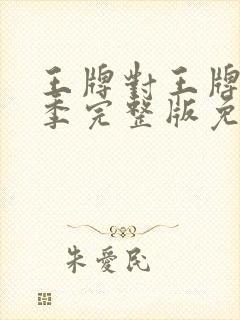 王牌對王牌
季完整版免
朱愛民